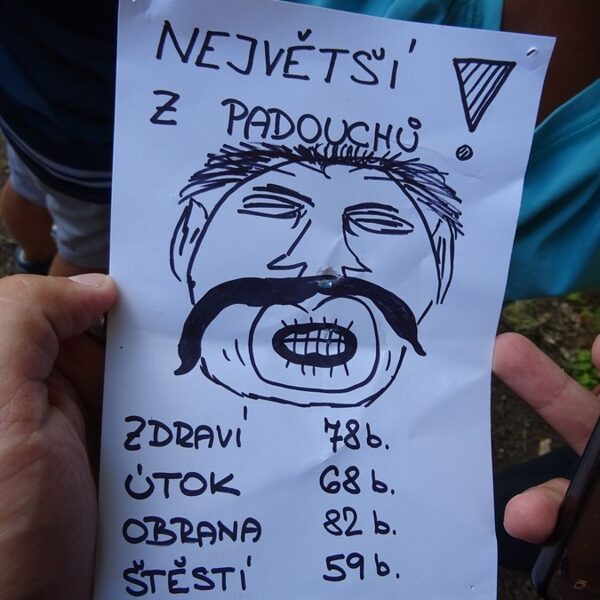 NEJVĚTŠÍ
Z PADOUCHŮ!
ZDRAVÍ 78b.
ÚTOK 68b.
OBRANA 82b.
ŠTĚSTÍ 59b.